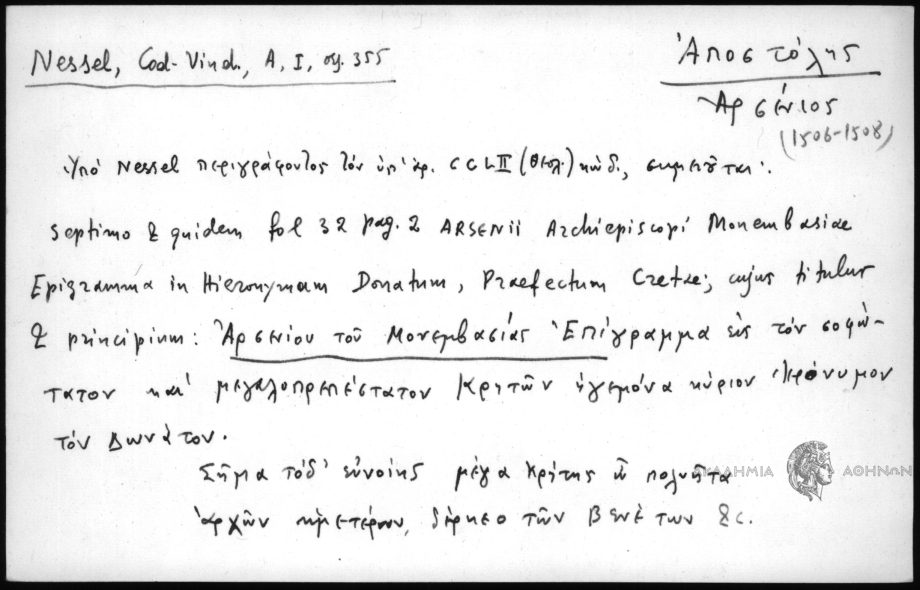 Nessel, Cod. Vind., A, I, σς. 355
Ἀποστόλης
Ἀρσένιος
(1506-1508)
Ὑπό Nessel περιγράφοντος τόν ὑπ' ἀρ. CCLII (θεολ.) κώδ., σημειοῦται:
septimo & quidem fol 32 pag. 2 ARSENII Archiepiscopi Monembasiae
Epigramma in Hieronymum Donatum, Praefectum Cretae; cujus titulus
& principium: Ἀρσενίου τοῦ Μονεμβασίας Ἐπίγραμμα εἰς τόν σοφώ-
τατον καί μεγαλοπρεπέστατον Κρητῶν ἡγεμόνα κύριον Ἱερόνυμον
τόν Δωνάτον.
Σῆμα τόδ' εὐνοίης μέγα Κρήτης ὦ πολιῆτα
ἀρχῶν ἡμετέρων, δέρκεο τῶν Βενέτων &c.
ΑΚΑΔΗΜΙΑ ΑΘΗΝΩΝ